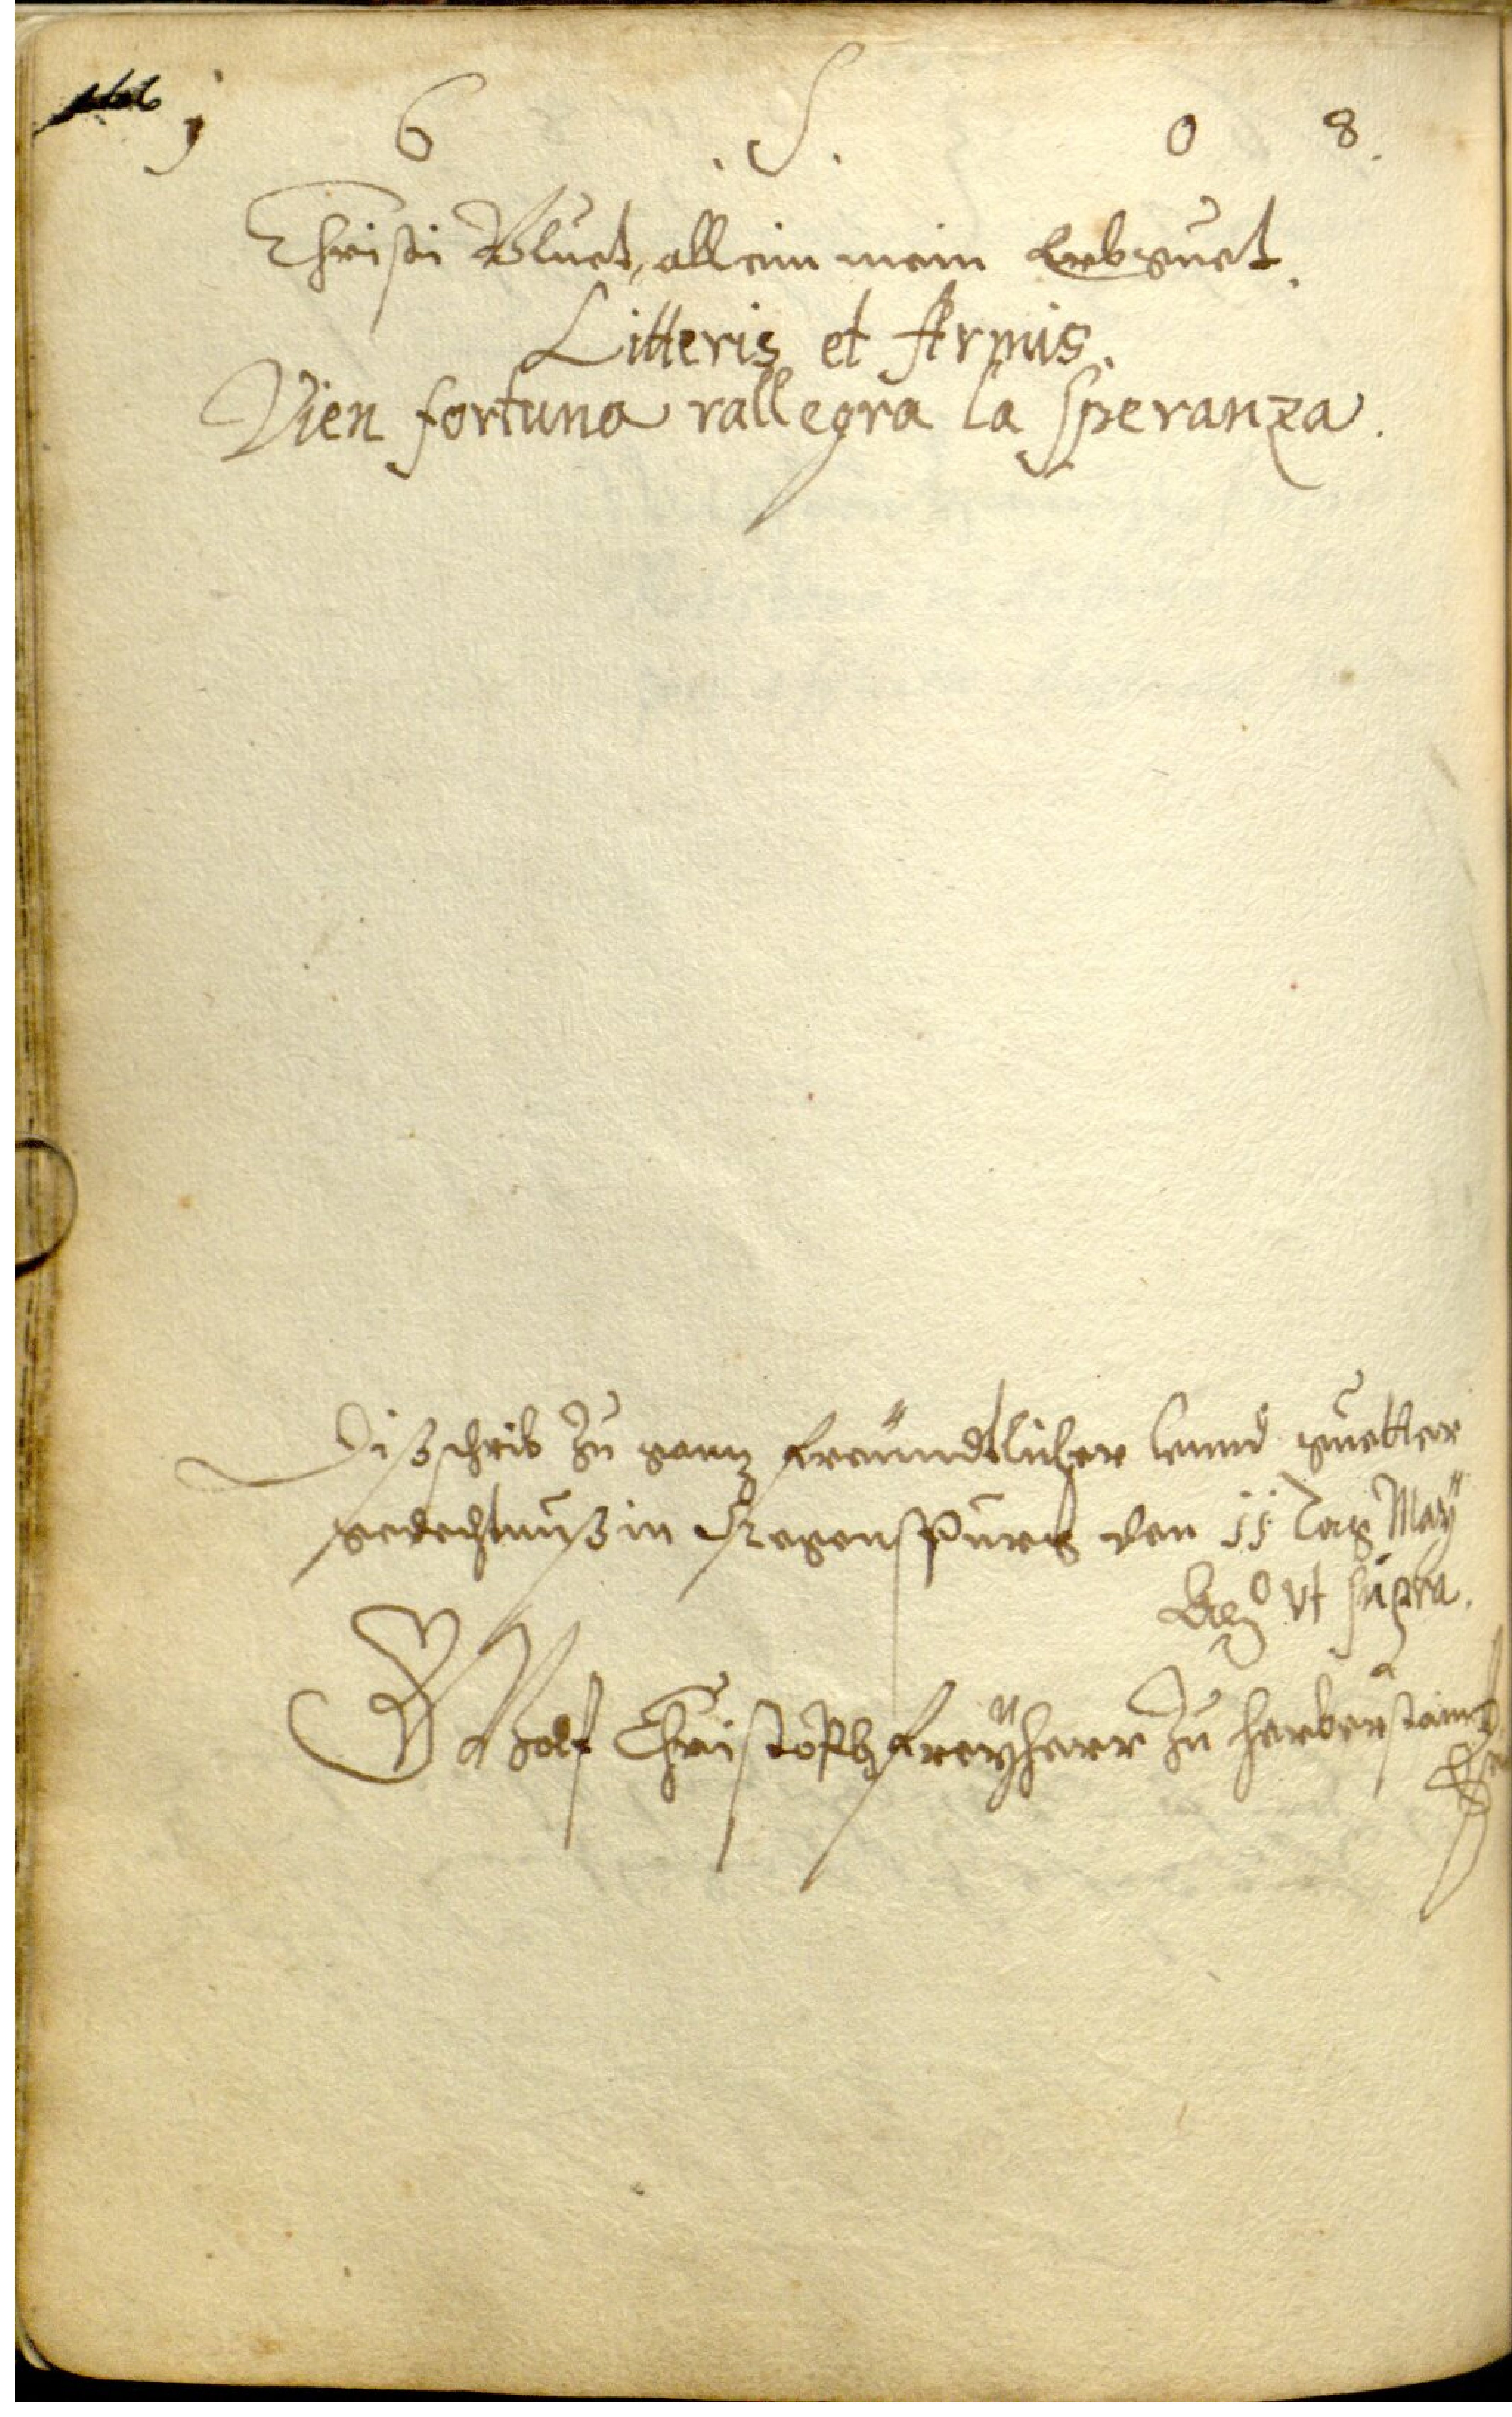 1 6 .S. 0 8.
Christi Bluet, allein mein Erbguet.
Litteris et Armis.
Vien fortuna rallegra la Speranza.
Diß schrib zu ganz freündtlicher vnnd guetter
gedechtnuß in Regenspurg den 11 Tag May
Aō vt supra.
Wolf Christoph freÿherr zu herberstain